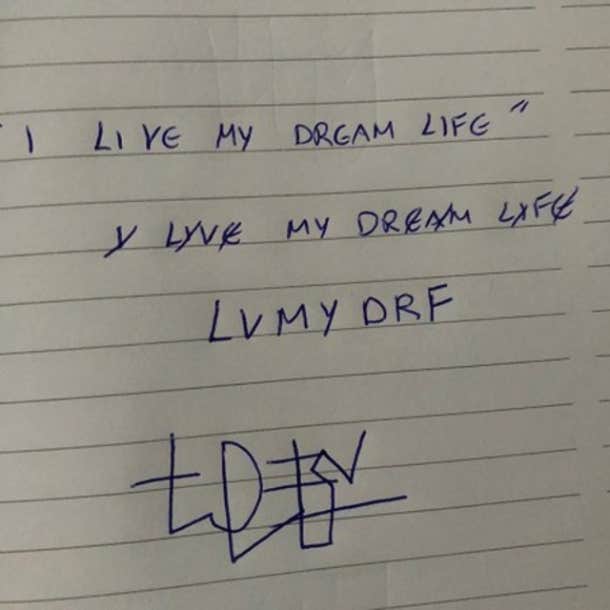 "I LIVE MY DREAM LIFE"
I LIVE MY DREAM LIFE
LVMYDRF